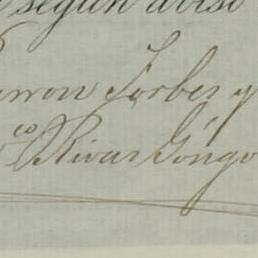 según aviso
Barron Forbes y
co Rivas Góngo